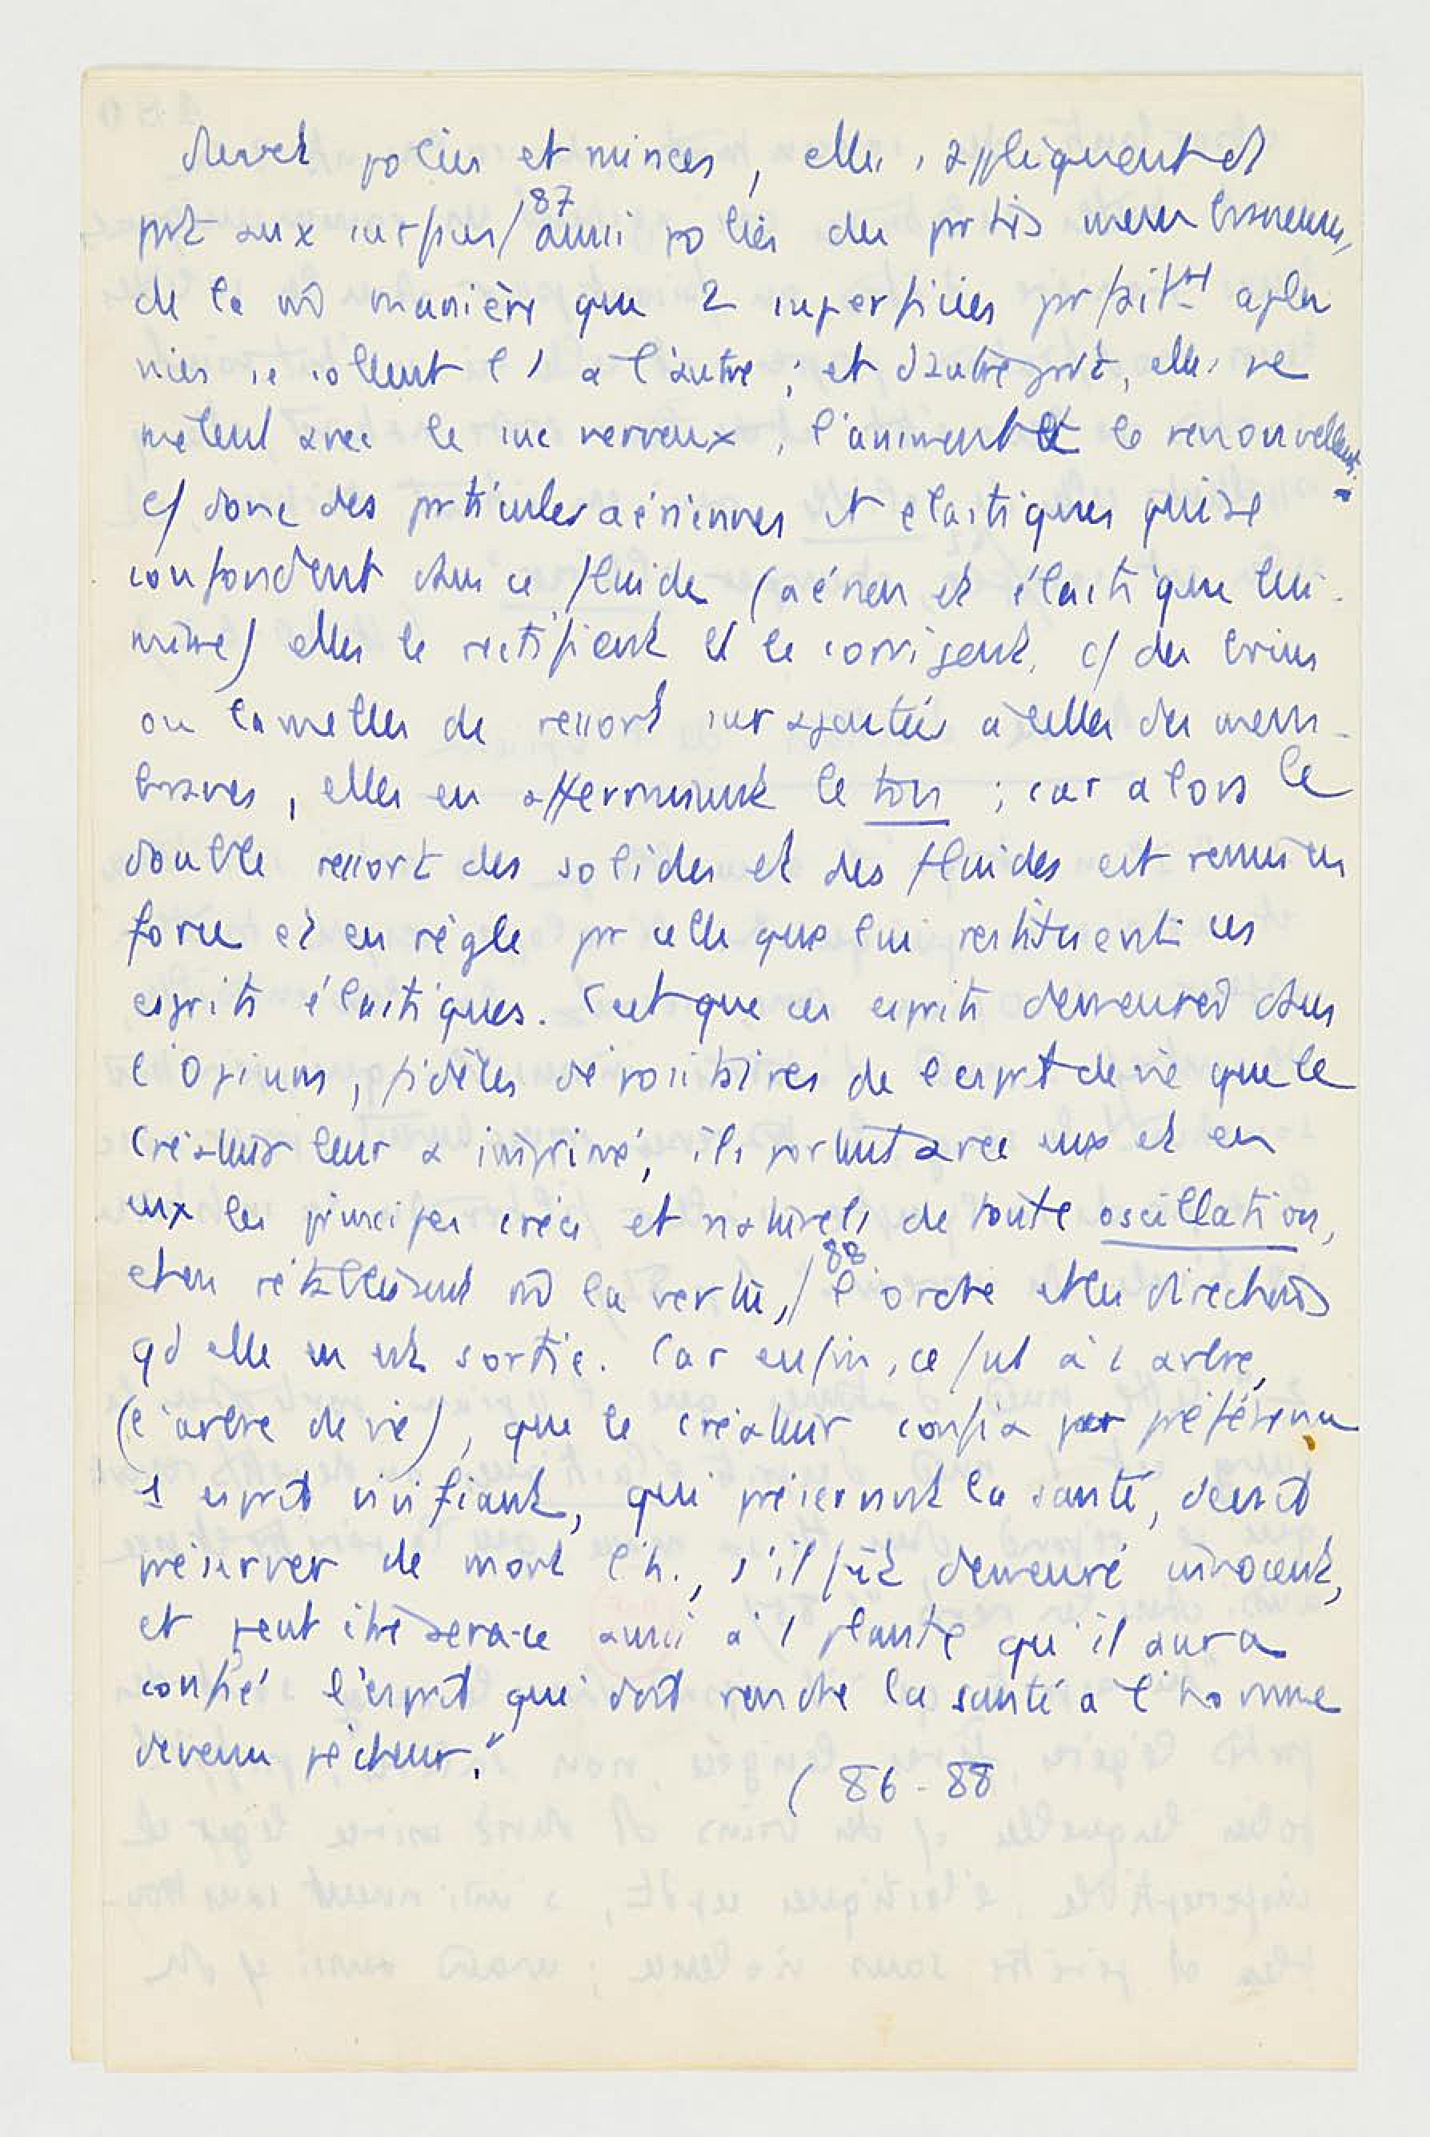 durct polies et minces, elles s'appliquent d'1
prt aux surfaces /87 aussi polies des prties membraneuses,
de la mê manière que 2 superficies prfait<sup>mt</sup> apla
nies se collent l'1 à l'autre ; et d'autre prt, elles se
mêlent avec le suc nerveux, l'animent et le renouvellent.
c/ donc des prticules aériennes et élastiques qui se
confondent dans ce fluide (aérien et élastique lui-
même) elles le rectifient et le corrigent, c/ des brins
ou lamelles de ressort surajoutées à celles des mem-
branes, elles en affermissent le ton ; car alors le
double ressort des solides et des fluides est remis en
force et en règle pr celle que lui restituent ces
esprits élastiques. C'est que ces esprits demeurent dans
l'Opium, fidèles dépositaires de l'esprt de vie que le
Créateur leur a imprimé, ils portent avec eux et en
eux les principes créés et naturels de toute oscillation,
et en rétablissent mê la vertu, /88 l'ordre et les directions
qd elle en est sortie. Car enfin, ce fut à 1 arbre,
(l'arbre de vie), que le créateur confia par préférence
1 esprit vivifiant, qui préservant la santé, devait
préserver de mort l'h., s'il fût demeuré innocent,
et peut être sera-ce aussi à 1 plante qu'il aura
confié l'esprit qui doit rendre la santé à l'homme
devenu pécheur."
( 86 - 88